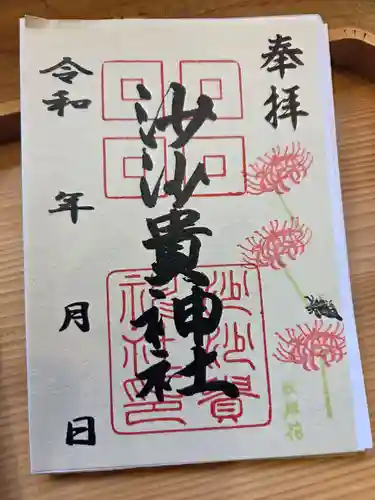 奉拝
沙沙貴神社
沙沙貴
神社印
令和
年
月
日